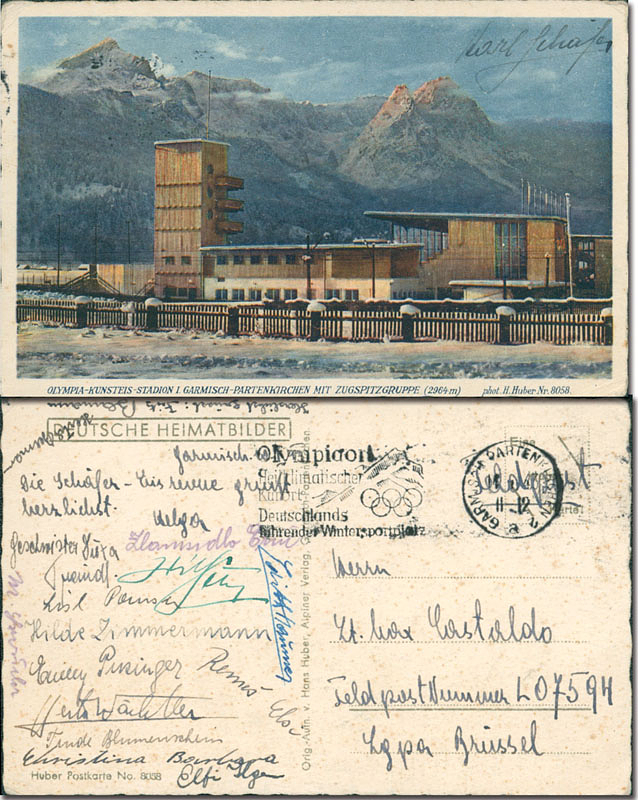 Karl Schäfer
OLYMPIA-KUNSTEIS-STADION I. GARMISCH-PARTENKIRCHEN MIT ZUGSPITZGRUPPE (2964 m) phot. H. Huber Nr. 8058.
DEUTSCHE HEIMATBILDER
Garmisch
Die Schäfer-Eisrevue grüßt
herzlichst
Helga
Geschwister
Hilde Zimmermann
Emmy Puzinger
Herta Wächtler
Trude Blumenschein
Christina Barbara
Huber Postkarte No. 8058
Orig.-Aufn. v. Hans Huber, Alpiner Verlag,
Olympiaort
Heilklimatischer
Kurort
Deutschlands
führender Wintersportplatz
GARMISCH-PARTENKIRCHEN 2
11-12
Feldpost
Herrn
Lt. Max Castaldo
Feldpostnummer L 07594
Lgpa Brüssel